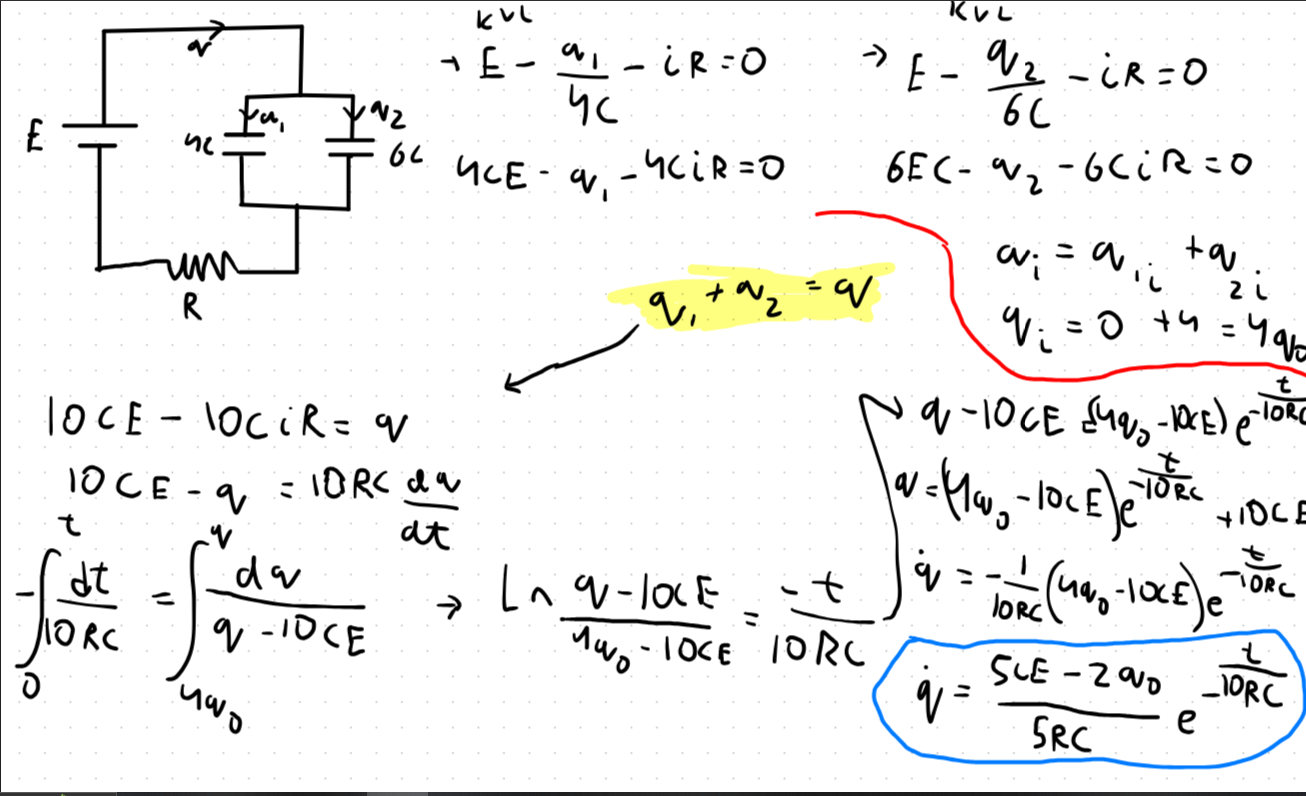 q
E
4C
q₁
q₂
6C
R
KVL
→ E - q₁/4C - iR = 0
4CE - q₁ - 4CiR = 0
KVL
→ E - q₂/6C - iR = 0
6EC - q₂ - 6CiR = 0
qᵢ = q₁ᵢ + q₂ᵢ
qᵢ = 0 + 4 = 4q₀
q₁ + q₂ = q
10CE - 10CiR = q
10CE - q = 10RC dq/dt
-∫₀ᵗ dt/10RC = ∫_{4q₀}^{q} dq/(q - 10CE) → Ln (q - 10CE)/(4q₀ - 10CE) = -t/10RC
q - 10CE = (4q₀ - 10CE) e^(-t/10RC)
q = (4q₀ - 10CE) e^(-t/10RC) + 10CE
q̇ = -1/10RC (4q₀ - 10CE) e^(-t/10RC)
q̇ = (5CE - 2q₀)/5RC e^(-t/10RC)